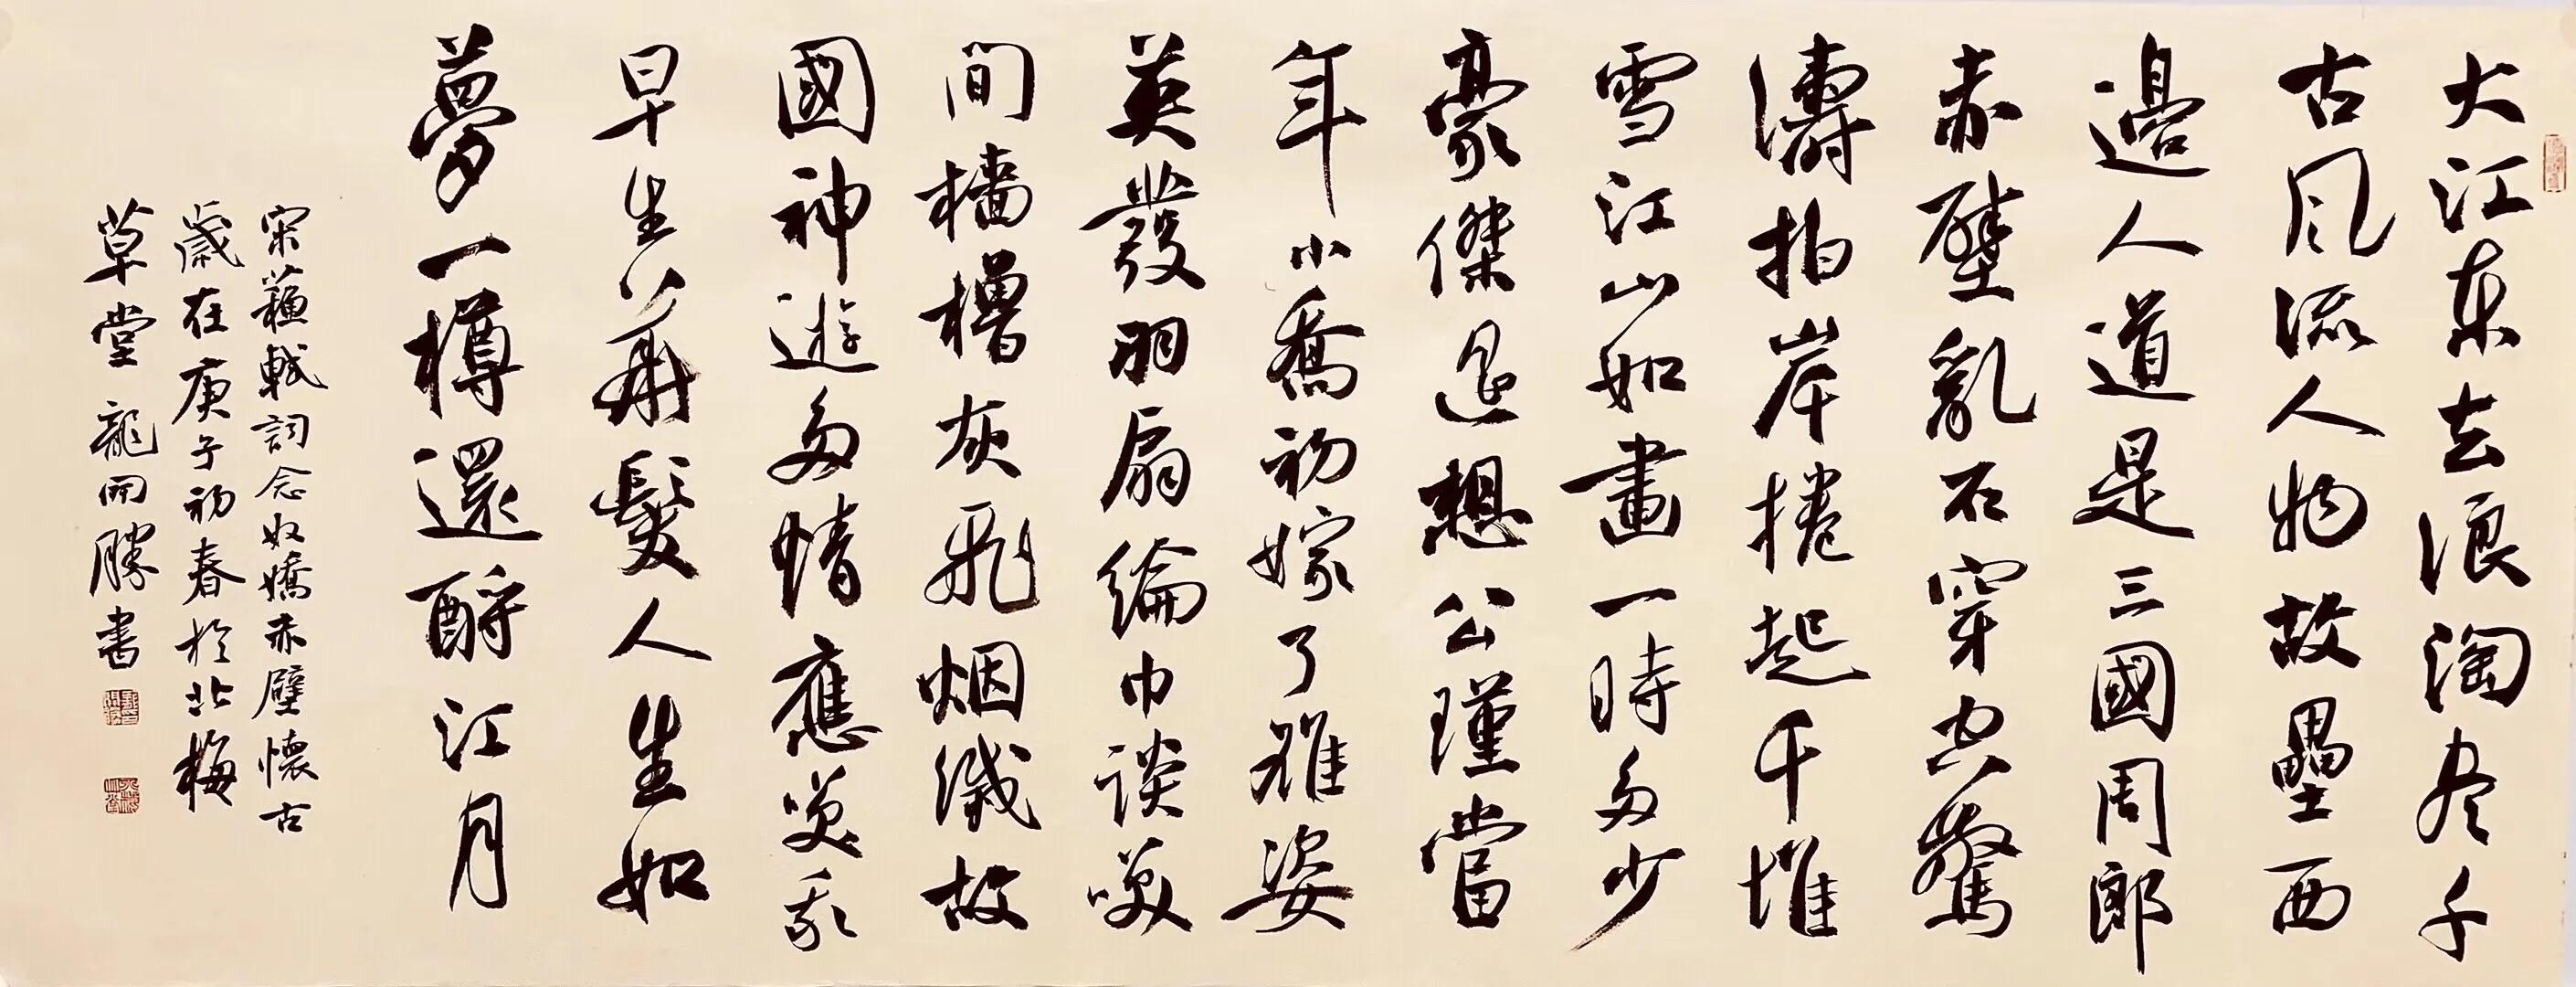 大江东去浪淘尽千
古风流人物故壘西
邊人道是三國周郎
赤壁亂石穿空驚
濤拍岸捲起千堆
雪江山如畫一時多少
豪傑遥想公瑾當
年小喬初嫁了雄姿
英發羽扇綸巾談笑
間檣櫓灰飛烟滅故
國神遊多情應笑我
早生華髮人生如
夢一樽還酹江月
宋蘇軾詞念奴嬌赤壁懷古
歲在庚子初春於北梅
草堂龍開勝書